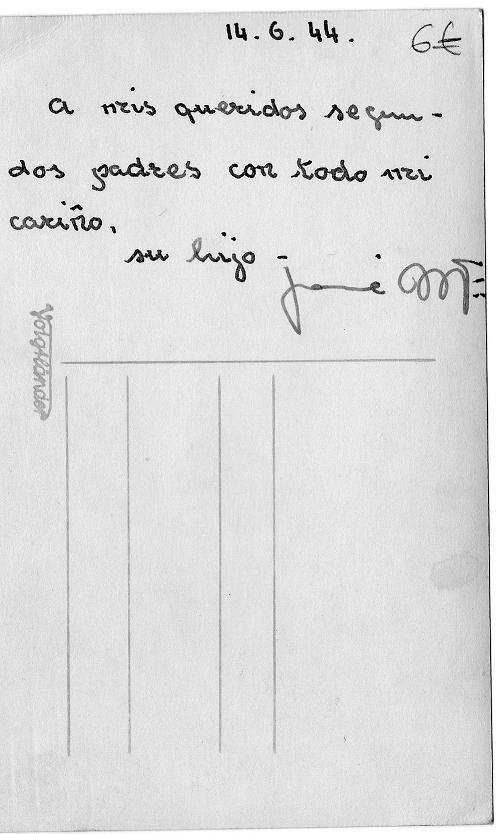 14.6.44.
6€
A mis queridos segun-
dos padres con todo mi
cariño.
su hijo -
José Mª
Voigtländer